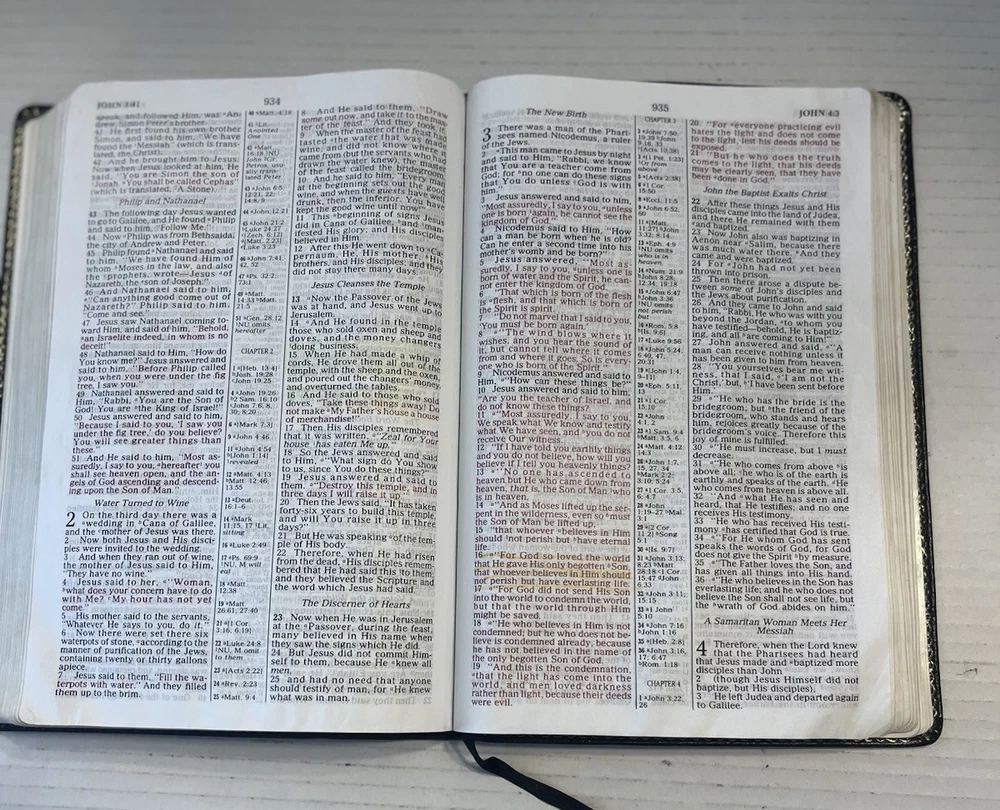 JOHN 1:41
934
speak, and followed Him, was An-
drew, Simon Peter's brother.
41 He first found his own brother
Simon, and said to him, "We have
found the Messiah" (which is trans-
lated, the Christ).
42 And he brought him to Jesus.
Now when Jesus looked at him, He
said, "You are Simon the son of
Jonah. You shall be called Cephas"
(which is translated, A Stone).
Philip and Nathanael
43 The following day Jesus wanted
to go to Galilee, and He found Philip
and said to him, "Follow Me."
44 Now Philip was from Bethsaida,
the city of Andrew and Peter.
45 Philip found Nathanael and said
to him, "We have found Him of
whom Moses in the law, and also
the prophets, wrote—Jesus of
Nazareth, the son of Joseph."
46 And Nathanael said to him,
"Can anything good come out of
Nazareth?" Philip said to him,
"Come and see."
47 Jesus saw Nathanael coming to-
ward Him, and said of him, "Behold,
an Israelite indeed, in whom is no
deceit!"
48 Nathanael said to Him, "How do
You know me?" Jesus answered and
said to him, "Before Philip called
you, when you were under the fig
tree, I saw you."
49 Nathanael answered and said to
Him, "Rabbi, You are the Son of
God! You are the King of Israel!"
50 Jesus answered and said to him,
"Because I said to you, 'I saw you
under the fig tree,' do you believe?
You will see greater things than
these."
51 And He said to him, "Most as-
suredly, I say to you, hereafter you
shall see heaven open, and the an-
gels of God ascending and descend-
ing upon the Son of Man."
Water Turned to Wine
2 On the third day there was a
wedding in Cana of Galilee,
and the mother of Jesus was there.
2 Now both Jesus and His disci-
ples were invited to the wedding.
3 And when they ran out of wine,
the mother of Jesus said to Him,
"They have no wine."
4 Jesus said to her, "Woman,
what does your concern have to do
with Me? My hour has not yet
come."
5 His mother said to the servants,
"Whatever He says to you, do it."
6 Now there were set there six
waterpots of stone, according to the
manner of purification of the Jews,
containing twenty or thirty gallons
apiece.
7 Jesus said to them, "Fill the wa-
terpots with water." And they filled
them up to the brim.
CHAPTER 2
8 And He said to them, "Draw
some out now, and take it to the mas-
ter of the feast." And they took it.
9 When the master of the feast had
tasted the water that was made
wine, and did not know where it
came from (but the servants who had
drawn the water knew), the master
of the feast called the bridegroom.
10 And he said to him, "Every man
at the beginning sets out the good
wine, and when the guests have well
drunk, then the inferior. You have
kept the good wine until now!"
11 This beginning of signs Jesus
did in Cana of Galilee, and mani-
fested His glory; and His disciples
believed in Him.
12 After this He went down to Ca-
pernaum, He, His mother, His
brothers, and His disciples; and they
did not stay there many days.
Jesus Cleanses the Temple
13 Now the Passover of the Jews
was at hand, and Jesus went up to
Jerusalem.
14 And He found in the temple
those who sold oxen and sheep and
doves, and the money changers
doing business.
15 When He had made a whip of
cords, He drove them all out of the
temple, with the sheep and the oxen,
and poured out the changers' money
and overturned the tables.
16 And He said to those who sold
doves, "Take these things away! Do
not make My Father's house a house
of merchandise!"
17 Then His disciples remembered
that it was written, "Zeal for Your
house has eaten Me up."
18 So the Jews answered and said
to Him, "What sign do You show
to us, since You do these things?"
19 Jesus answered and said to
them, "Destroy this temple, and in
three days I will raise it up."
20 Then the Jews said, "It has taken
forty-six years to build this temple,
and will You raise it up in three
days?"
21 But He was speaking of the tem-
ple of His body.
22 Therefore, when He had risen
from the dead, His disciples remem-
bered that He had said this to them;
and they believed the Scripture and
the word which Jesus had said.
The Discerner of Hearts
23 Now when He was in Jerusalem
at the Passover, during the feast,
many believed in His name when
they saw the signs which He did.
24 But Jesus did not commit Him-
self to them, because He knew all
men,
25 and had no need that anyone
should testify of man, for He knew
what was in man.
935
JOHN 4:3
The New Birth
3 There was a man of the Phari-
sees named Nicodemus, a ruler
of the Jews.
2 This man came to Jesus by night
and said to Him, "Rabbi, we know
that You are a teacher come from
God; for no one can do these signs
that You do unless God is with
him."
3 Jesus answered and said to him,
"Most assuredly, I say to you, unless
one is born again, he cannot see the
kingdom of God."
4 Nicodemus said to Him, "How
can a man be born when he is old?
Can he enter a second time into his
mother's womb and be born?"
5 Jesus answered, "Most as-
suredly, I say to you, unless one is
born of water and the Spirit, he can-
not enter the kingdom of God.
6 "That which is born of the flesh
is flesh, and that which is born of
the Spirit is spirit.
7 "Do not marvel that I said to you,
'You must be born again.'
8 "The wind blows where it
wishes, and you hear the sound of
it, but cannot tell where it comes
from and where it goes. So is every-
one who is born of the Spirit."
9 Nicodemus answered and said to
Him, "How can these things be?"
10 Jesus answered and said to him,
"Are you the teacher of Israel, and
do not know these things?
11 "Most assuredly, I say to you,
We speak what We know and testify
what We have seen, and you do not
receive Our witness.
12 "If I have told you earthly things
and you do not believe, how will you
believe if I tell you heavenly things?
13 "No one has ascended to
heaven but He who came down from
heaven, that is, the Son of Man who
is in heaven.
14 "And as Moses lifted up the ser-
pent in the wilderness, even so must
the Son of Man be lifted up,
15 "that whoever believes in Him
should not perish but have eternal
life.
16 "For God so loved the world
that He gave His only begotten Son,
that whoever believes in Him should
not perish but have everlasting life.
17 "For God did not send His Son
into the world to condemn the world,
but that the world through Him
might be saved.
18 "He who believes in Him is not
condemned; but he who does not be-
lieve is condemned already, because
he has not believed in the name of
the only begotten Son of God.
19 "And this is the condemnation,
that the light has come into the
world, and men loved darkness
rather than light, because their deeds
were evil.
CHAPTER 3
CHAPTER 4
20 "For everyone practicing evil
hates the light and does not come
to the light, lest his deeds should be
exposed.
21 "But he who does the truth
comes to the light, that his deeds
may be clearly seen, that they have
been done in God."
John the Baptist Exalts Christ
22 After these things Jesus and His
disciples came into the land of Judea,
and there He remained with them
and baptized.
23 Now John also was baptizing in
Aenon near Salim, because there
was much water there. And they
came and were baptized.
24 For John had not yet been
thrown into prison.
25 Then there arose a dispute be-
tween some of John's disciples and
the Jews about purification.
26 And they came to John and said
to him, "Rabbi, He who was with you
beyond the Jordan, to whom you
have testified—behold, He is baptiz-
ing, and all are coming to Him!"
27 John answered and said, "A
man can receive nothing unless it
has been given to him from heaven.
28 "You yourselves bear me wit-
ness, that I said, 'I am not the
Christ,' but, 'I have been sent before
Him.'
29 "He who has the bride is the
bridegroom; but the friend of the
bridegroom, who stands and hears
him, rejoices greatly because of the
bridegroom's voice. Therefore this
joy of mine is fulfilled.
30 "He must increase, but I must
decrease.
31 "He who comes from above is
above all; he who is of the earth is
earthly and speaks of the earth. He
who comes from heaven is above all.
32 "And what He has seen and
heard, that He testifies; and no one
receives His testimony.
33 "He who has received His testi-
mony has certified that God is true.
34 "For He whom God has sent
speaks the words of God, for God
does not give the Spirit by measure.
35 "The Father loves the Son, and
has given all things into His hand.
36 "He who believes in the Son has
everlasting life; and he who does not
believe the Son shall not see life, but
the wrath of God abides on him."
A Samaritan Woman Meets Her
Messiah
4 Therefore, when the Lord knew
that the Pharisees had heard
that Jesus made and baptized more
disciples than John
2 (though Jesus Himself did not
baptize, but His disciples),
3 He left Judea and departed again
to Galilee.